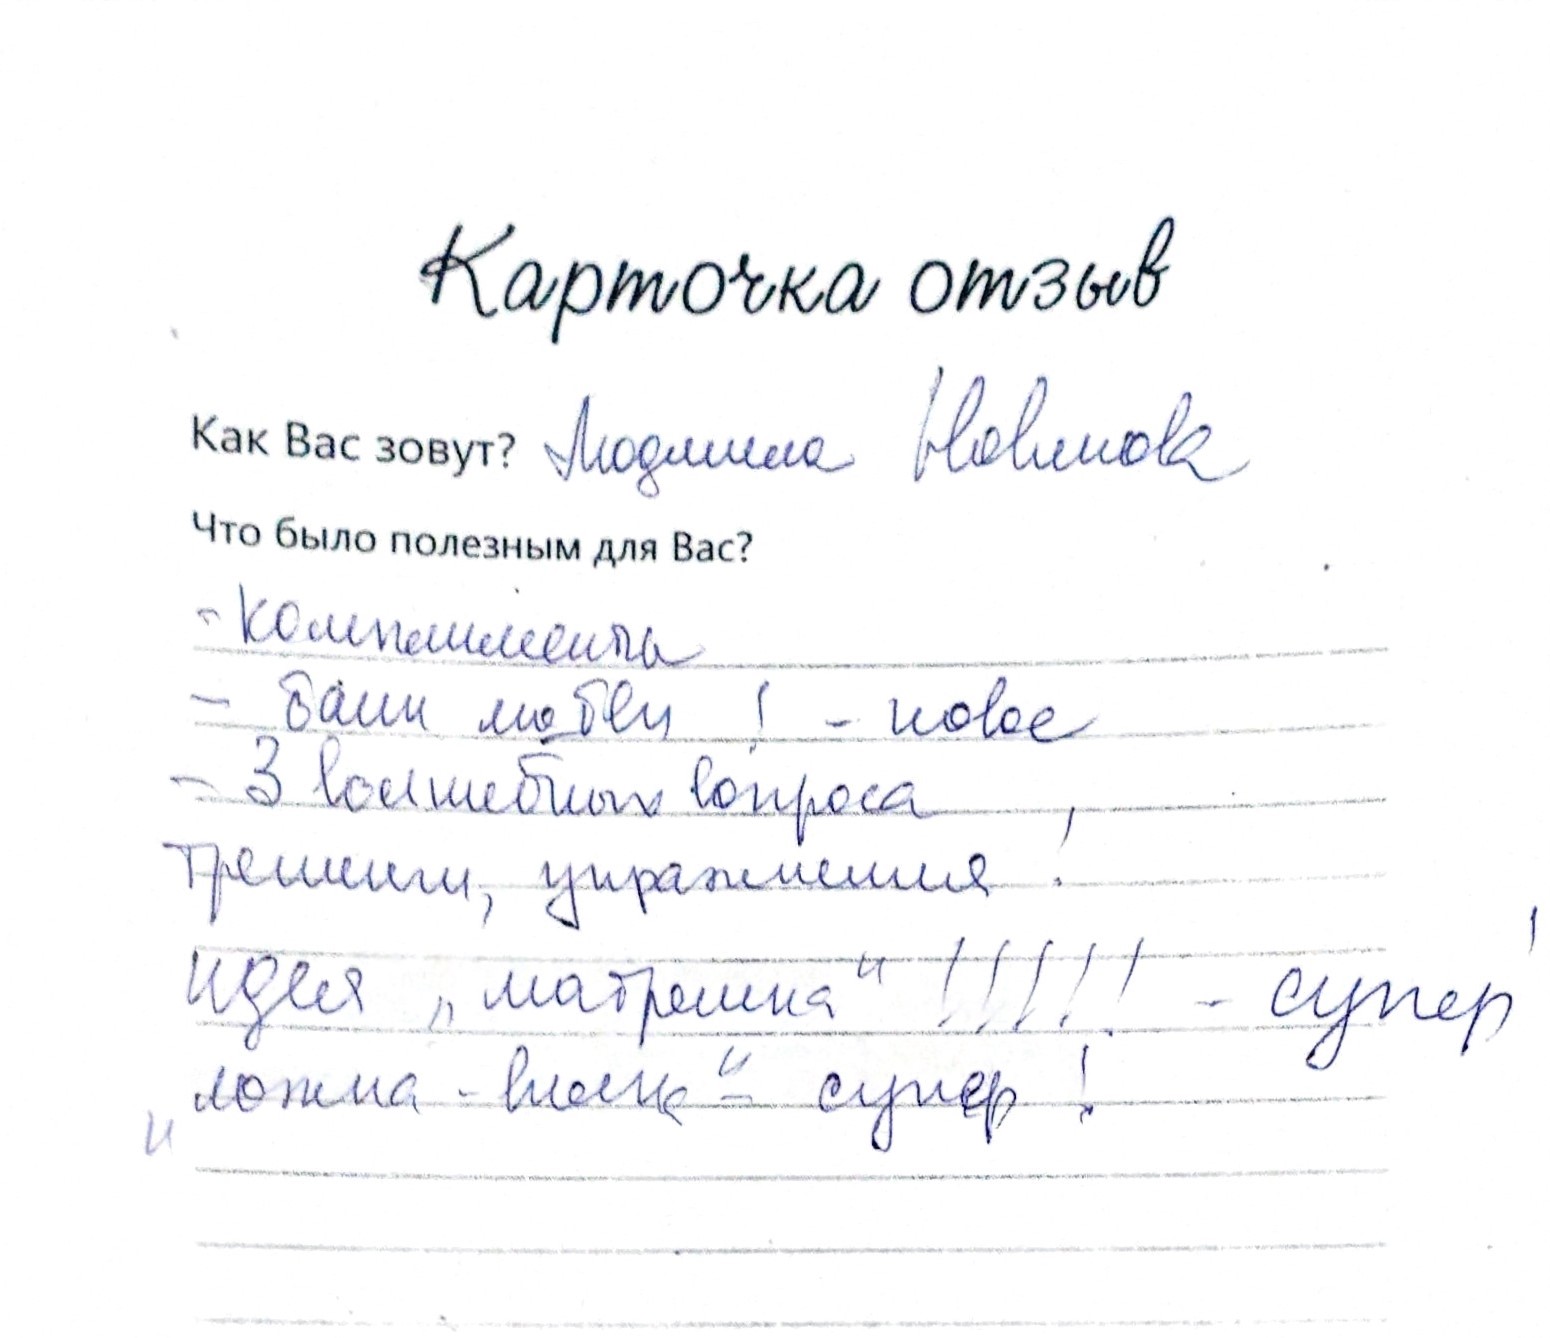 Карточка отзыв
Как Вас зовут? Людмила
Что было полезным для Вас?
- Комплименты
- банк любви ! - новое
- 3 волшебных вопроса
тренинги, упражнения !
идея „матрешка“ !!!!! - супер!
"ложка - вилка" - супер !